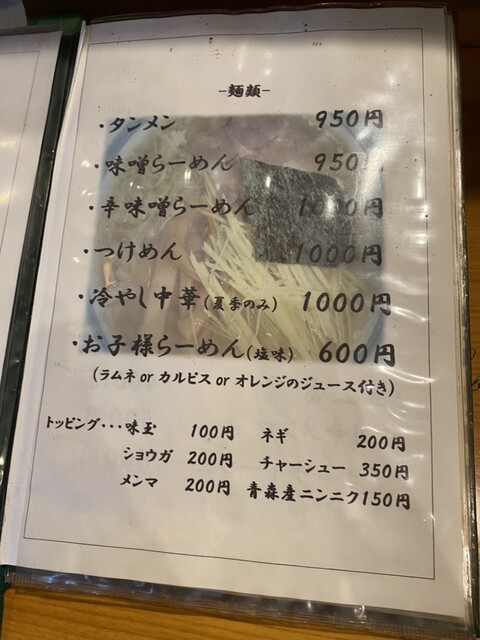 -麺類-
・タンメン 950円
・味噌らーめん 950円
・辛味噌らーめん 1000円
・つけめん 1000円
・冷やし中華(夏季のみ) 1000円
・お子様らーめん(塩味) 600円
(ラムネ or カルピス or オレンジのジュース付き)
トッピング・・・味玉 100円 ネギ 200円
ショウガ 200円 チャーシュー 350円
メンマ 200円 青森産ニンニク 150円